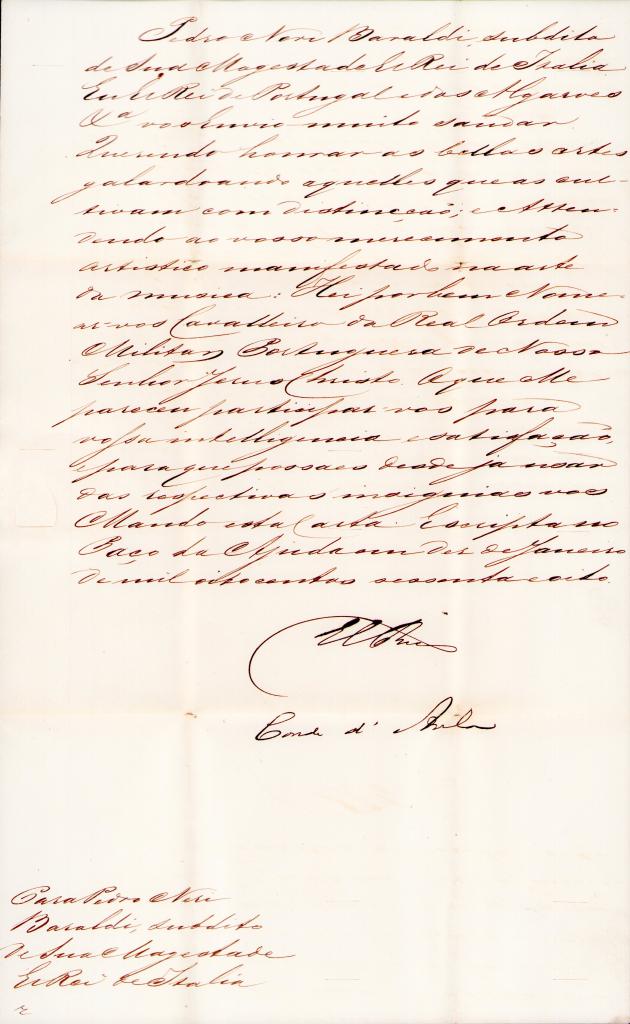 Pedro Neri Baraldi, subdito
de Sua Magestade El Rei de Italia
Eu El Rei de Portugal e dos Algarves
&ª vos Envio muito saudar
Querendo honrar as bellas artes
galardoando aquelles que as cul-
tivam com distincção; e Atten-
dendo ao vosso merecimento
artistico manifestado na arte
da musica: Hei por bem Nome-
ar-vos Cavalleiro da Real Ordem
Militar Portugueza de Nosso
Senhor Jesus Christo. O que Me
pareceu participar-vos para
vossa intelligencia e satisfação,
e para que possaes desde já usar
das respectivas insignias vos
Mando esta Carta. Escripta no
Paço da Ajuda em dez de Janeiro
de mil oitocentos sessenta e oito.
El Rei
Conde d'Avila
Para Pedro Neri
Baraldi, subdito
de Sua Magestade
El Rei de Italia